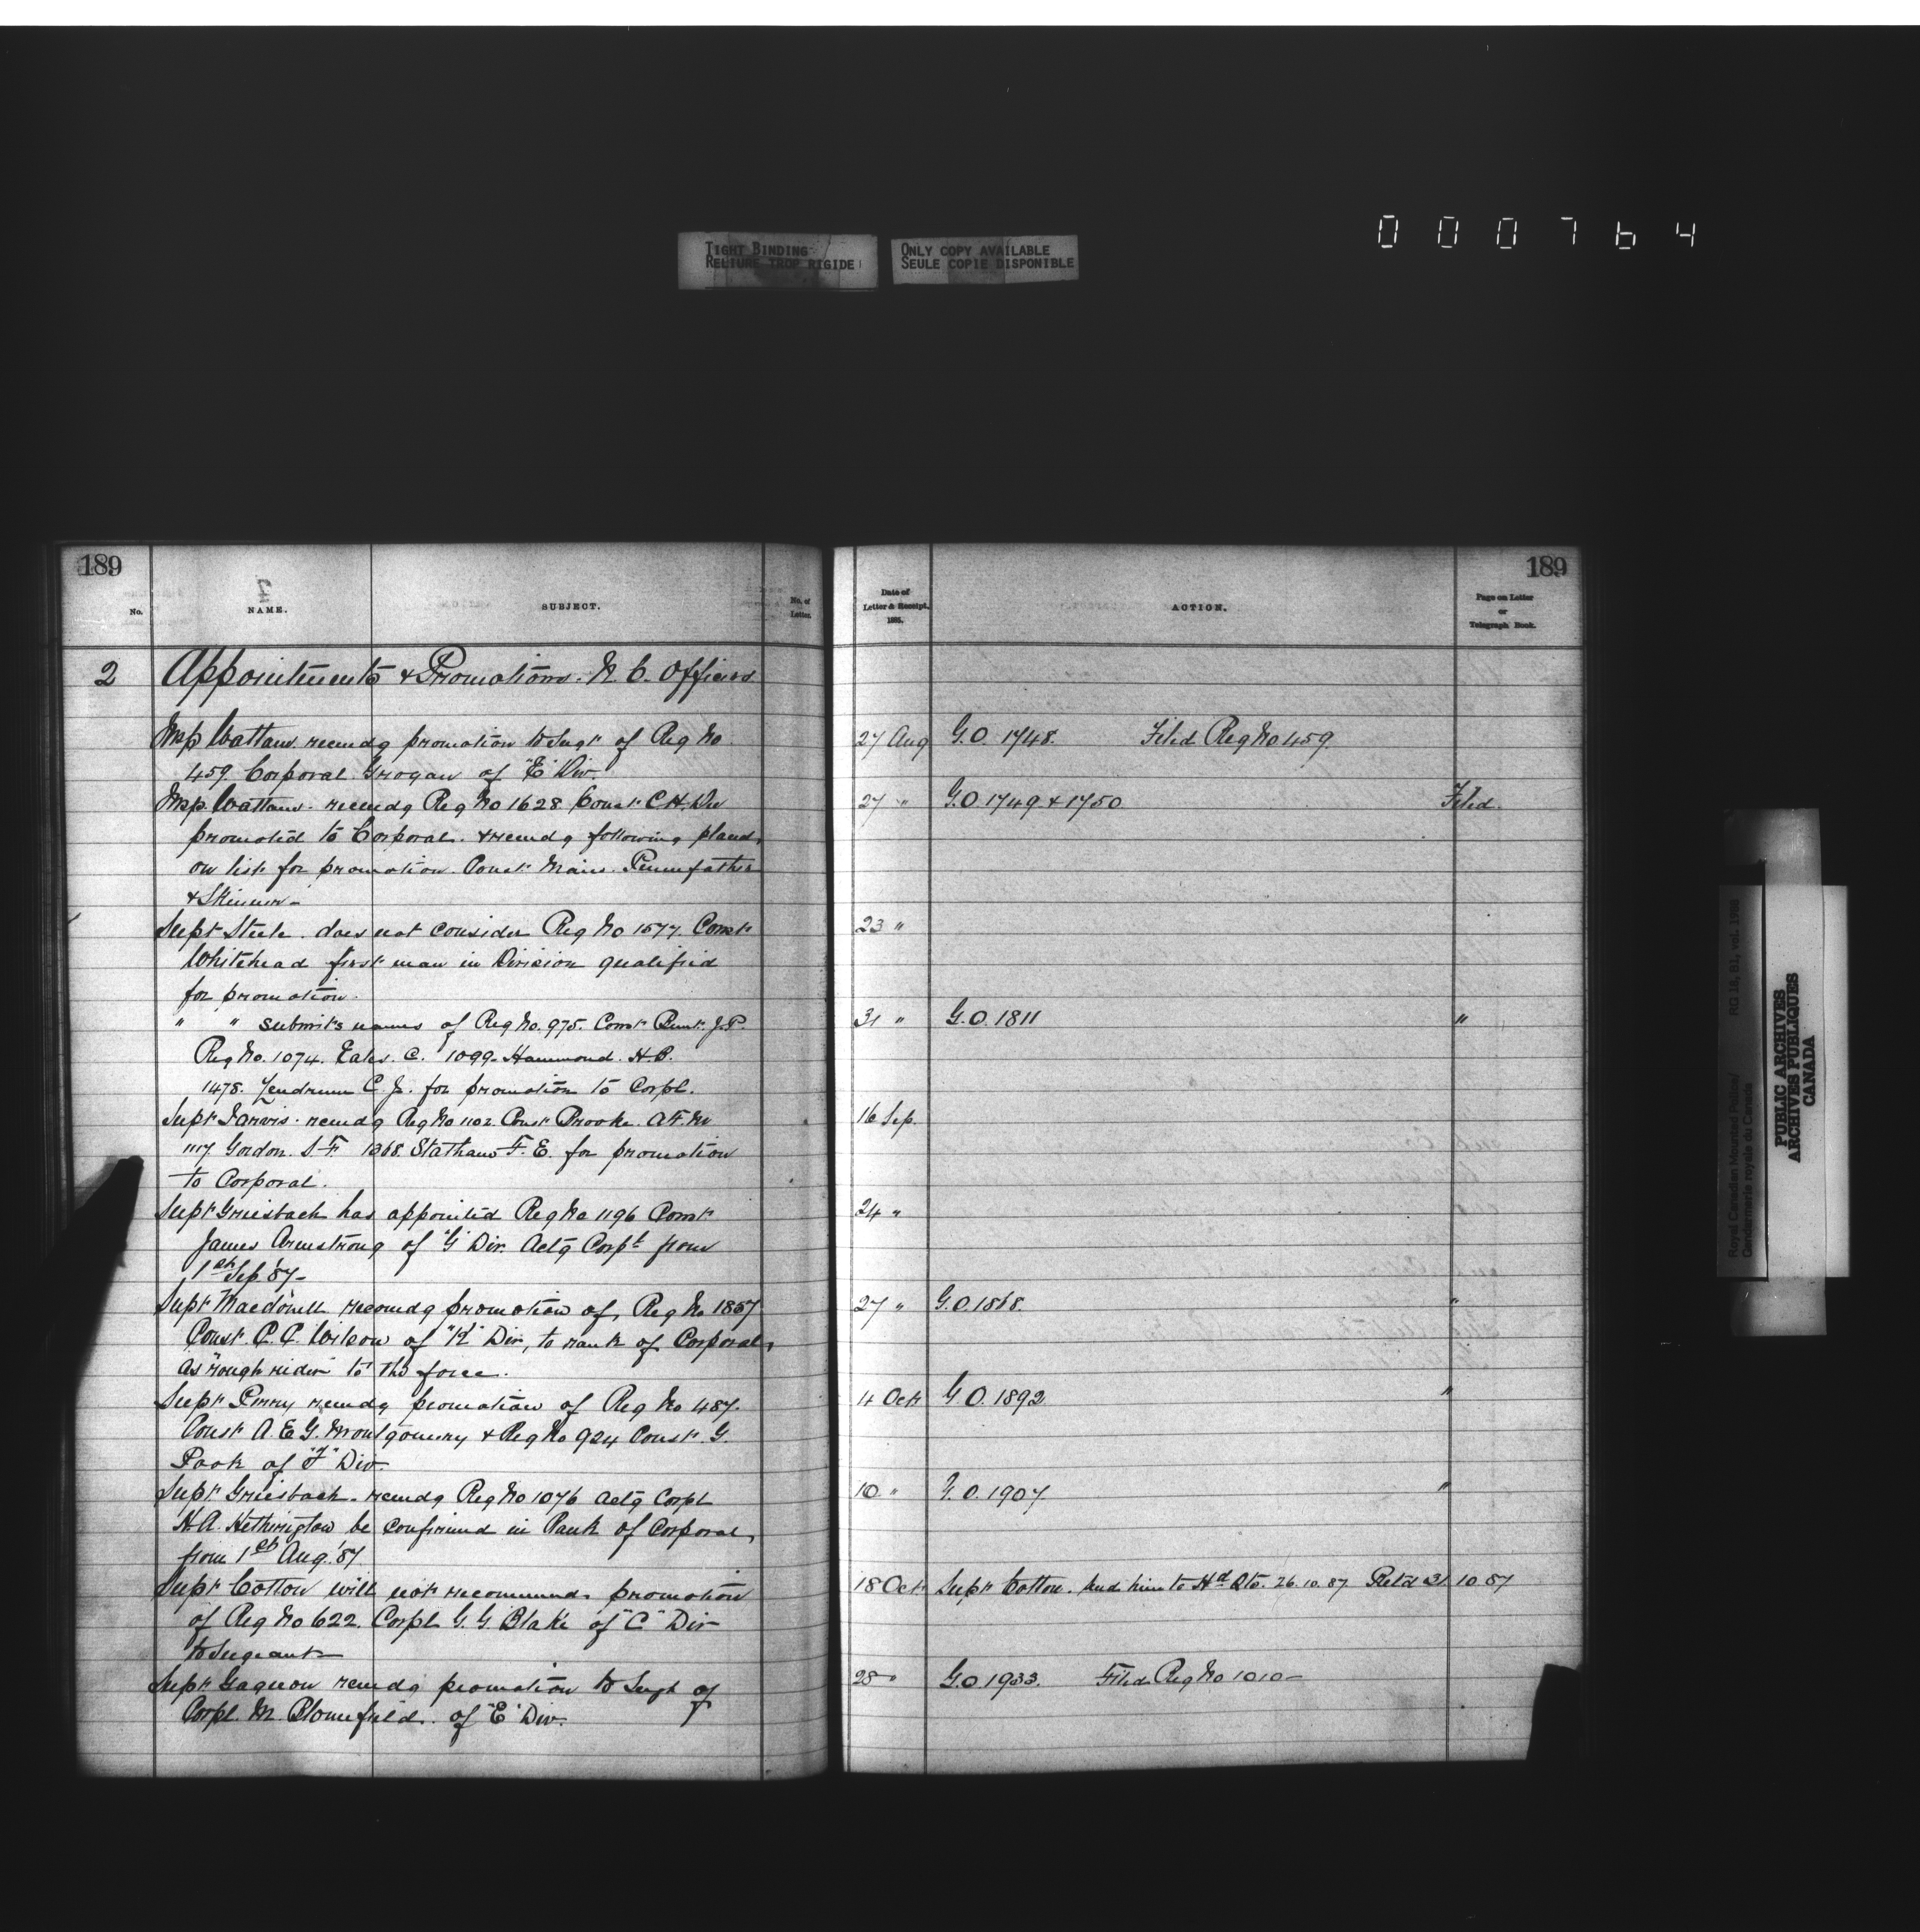 0 0 0 7 6 4
TIGHT BINDING
RELIURE TROP RIGIDE
ONLY COPY AVAILABLE
SEULE COPIE DISPONIBLE
189
No.
NAME.
SUBJECT.
No. of Letter.
2 Appointments & Promotions. N. C. Officers
Insp Wattam recmdg promotion to Sergt of Reg No
459. Corporal Grogan of "E" Div.
Insp. Wattam. recmdg Reg No 1628 Const C. H. Dee
promoted to Corporal. & recmdg following placed
on list for promotion. Const Main. Pennfather
& Skinner -
Supt Steele. does not consider Reg No 1577. Const
Whitehead first man in Division qualified
for promotion.
" " submits names of Reg No. 975. Const Bunt. J. P.
Reg No. 1074. Eales. C. 1099. Hammond. H. B.
1478. Lendrum C. J. for promotion to Corpl.
Supt Jarvis. recmdg Reg No 1102 Const Brooke. A. F. M
1117. Gordon. S. F. 1368. Statham F. E. for promotion
to Corporal.
Supt Griesbach has appointed Reg No 1196 Const
James Armstrong of "G" Div. Actg Corpl from
1st Sep '87 -
Supt Macdonell recomdg promotion of, Reg No 1857
Const. C. C. Wilson of "K" Div, to rank of Corporal,
as "rough rider" to the force.
Supt Perry recmdg promotion of Reg No 487.
Const A. E. G. Montgomery & Reg No 924 Const. G.
Pook of "F" Div.
Supt Griesbach. recmdg Reg No 1076 Actg Corpl
H. A. Hetherington be confirmed in Rank of Corporal,
from 1st Aug. '87
Supt Cotton will not recommend promotion
of Reg No 622. Corpl G. G. Blake of "C" Div
to Sergeant
Supt Gagnon recmdg promotion to Sergt of
Corpl. M. Blomefield. of "E" Div.
189
Date of Letter & Receipt. 1885.
ACTION.
Page on Letter or Telegraph Book.
27 Aug G.O. 1748. Filed Reg No 459
27 " G.O. 1749 & 1750 Filed.
23 "
31 " G.O. 1811 "
16 Sep.
24 "
27 " G.O. 1868. "
4 Oct G.O. 1892 "
10 " G.O. 1907 "
18 Oct Supt Cotton. send him to Hd Qts. 26.10.87. Retd 31 10 87
28 " G.O. 1933. Filed Reg No 1010 -
Royal Canadian Mounted Police/ RG 18, B1, vol. 1788
Gendarmerie royale du Canada
PUBLIC ARCHIVES
ARCHIVES PUBLIQUES
CANADA